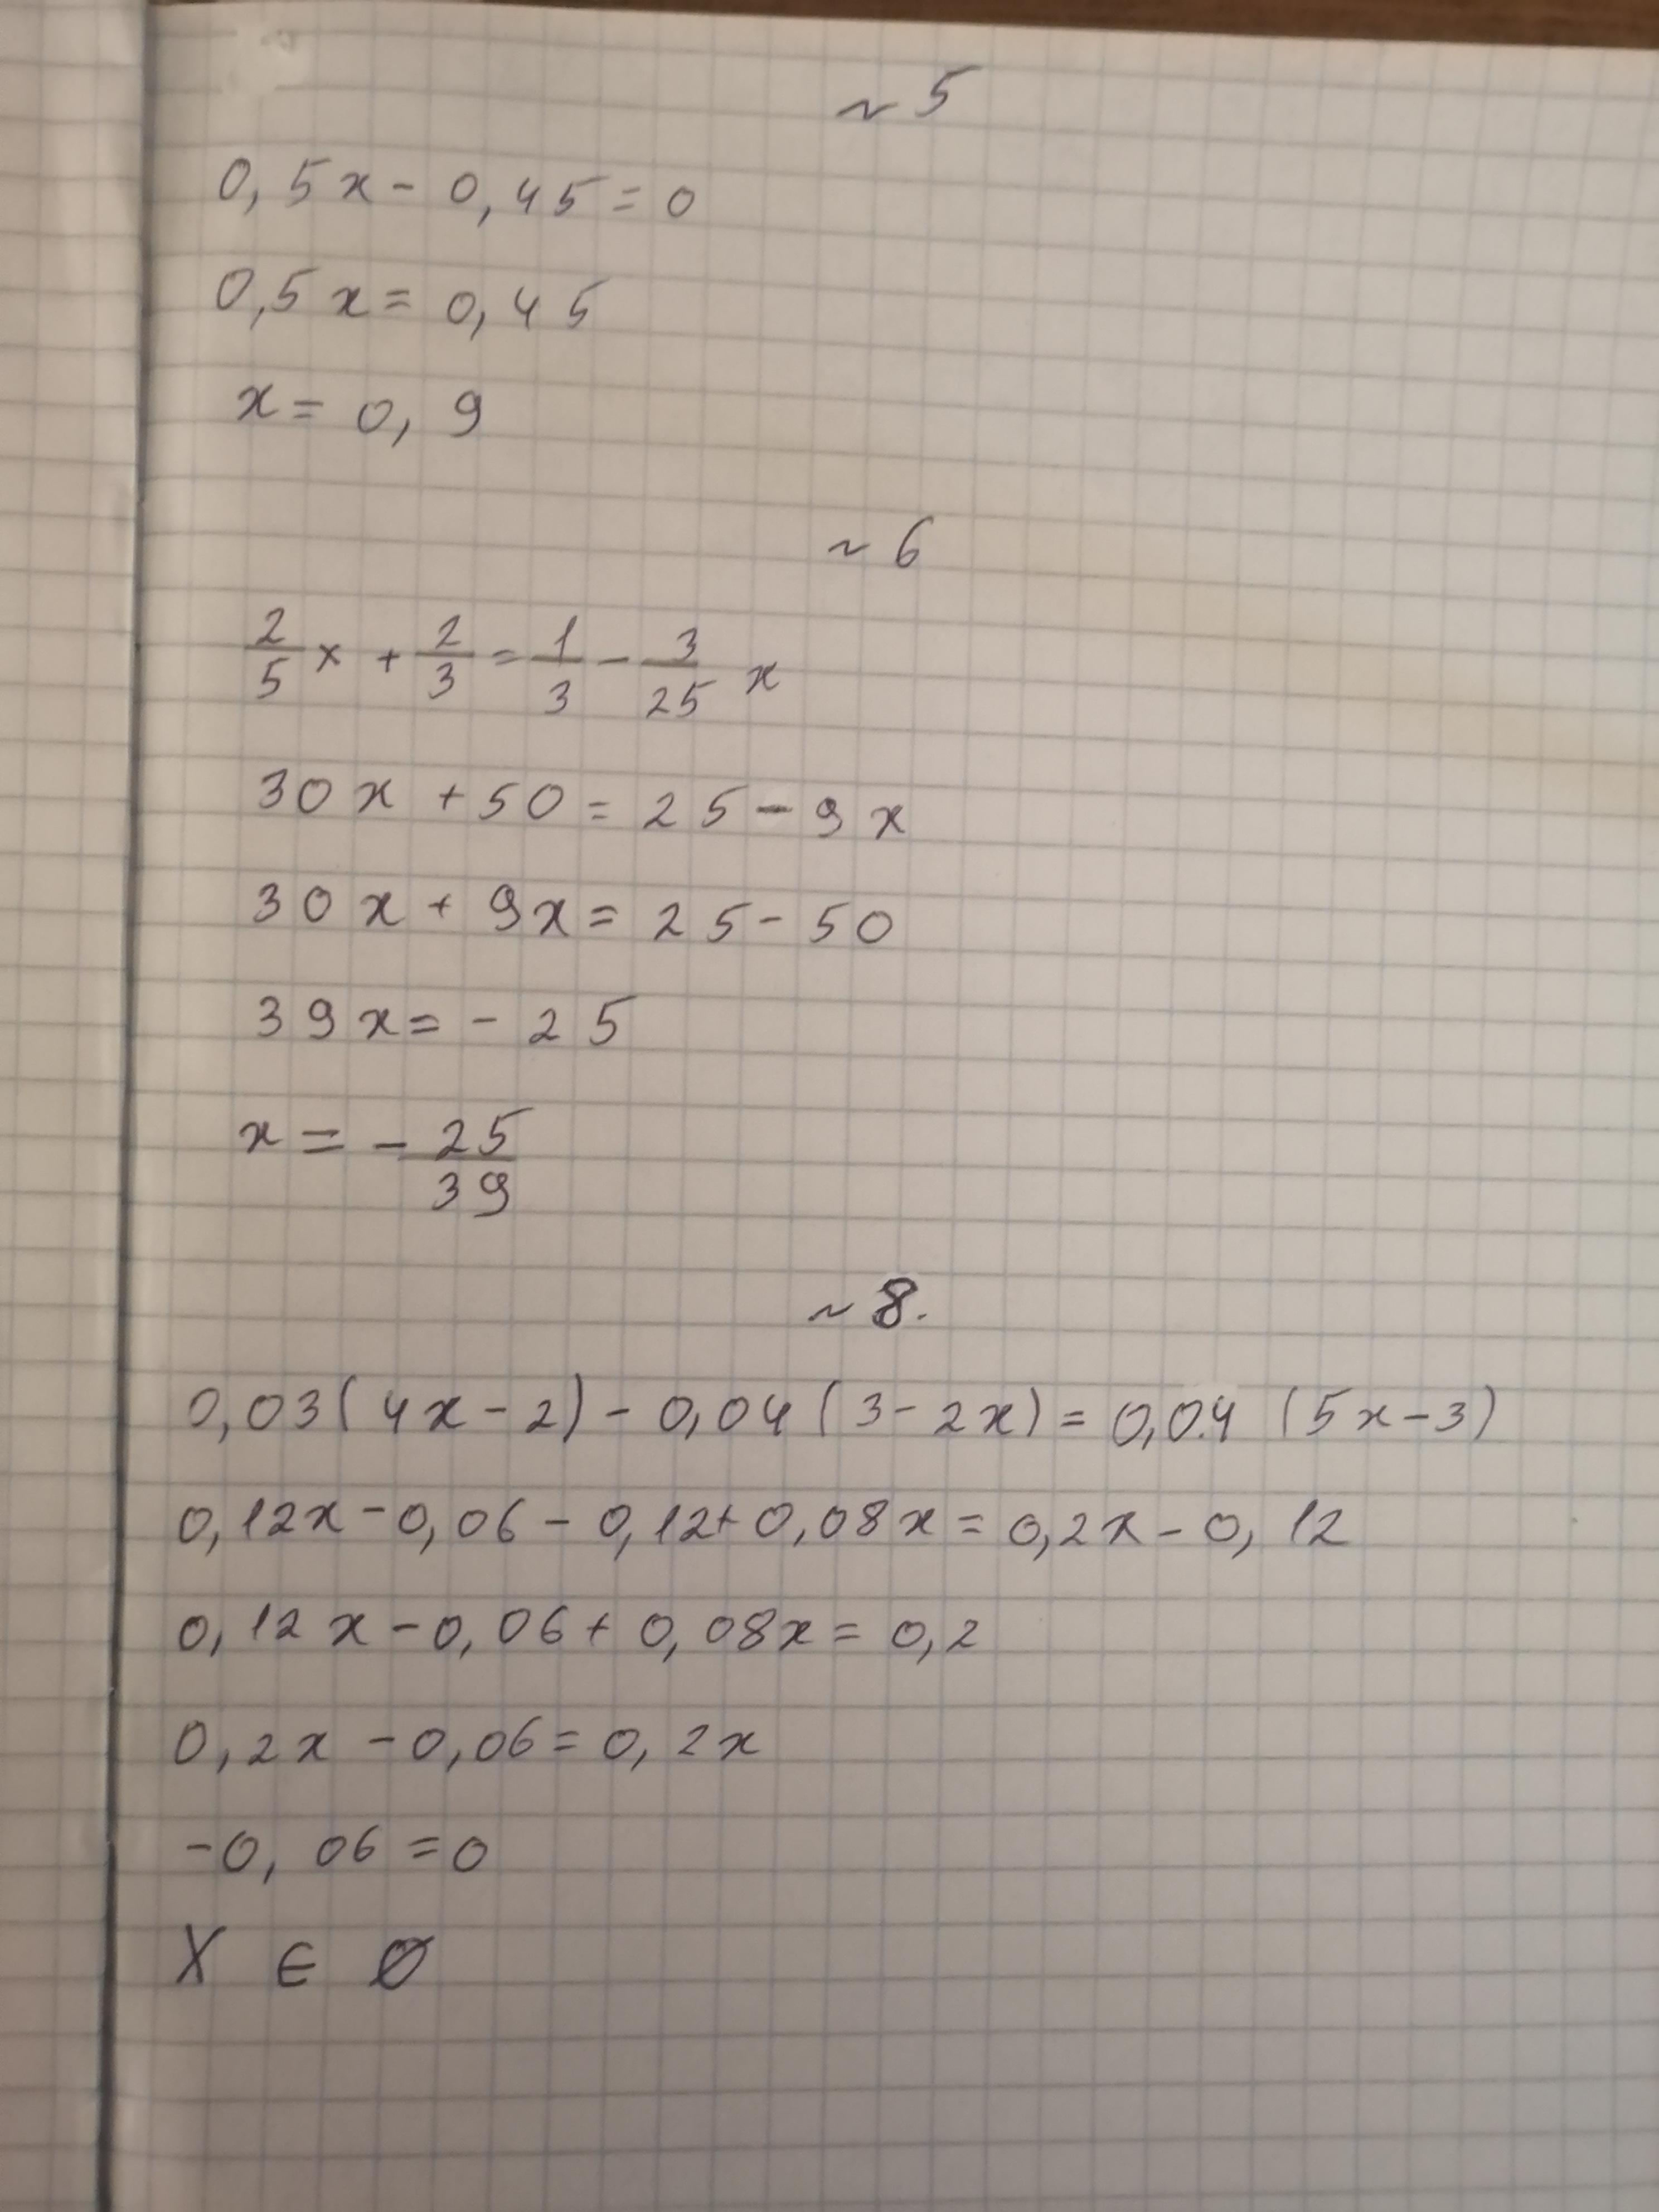 ~5
0,5x - 0,45 = 0
0,5x = 0,45
x = 0,9
~6
2/5 x + 2/3 = 1/3 - 3/25 x
30x + 50 = 25 - 9x
30x + 9x = 25 - 50
39x = - 25
x = - 25/39
~8.
0,03(4x - 2) - 0,04(3 - 2x) = 0,04(5x - 3)
0,12x - 0,06 - 0,12 + 0,08x = 0,2x - 0,12
0,12x - 0,06 + 0,08x = 0,2
0,2x - 0,06 = 0,2x
-0,06 = 0
X ∈ Ø